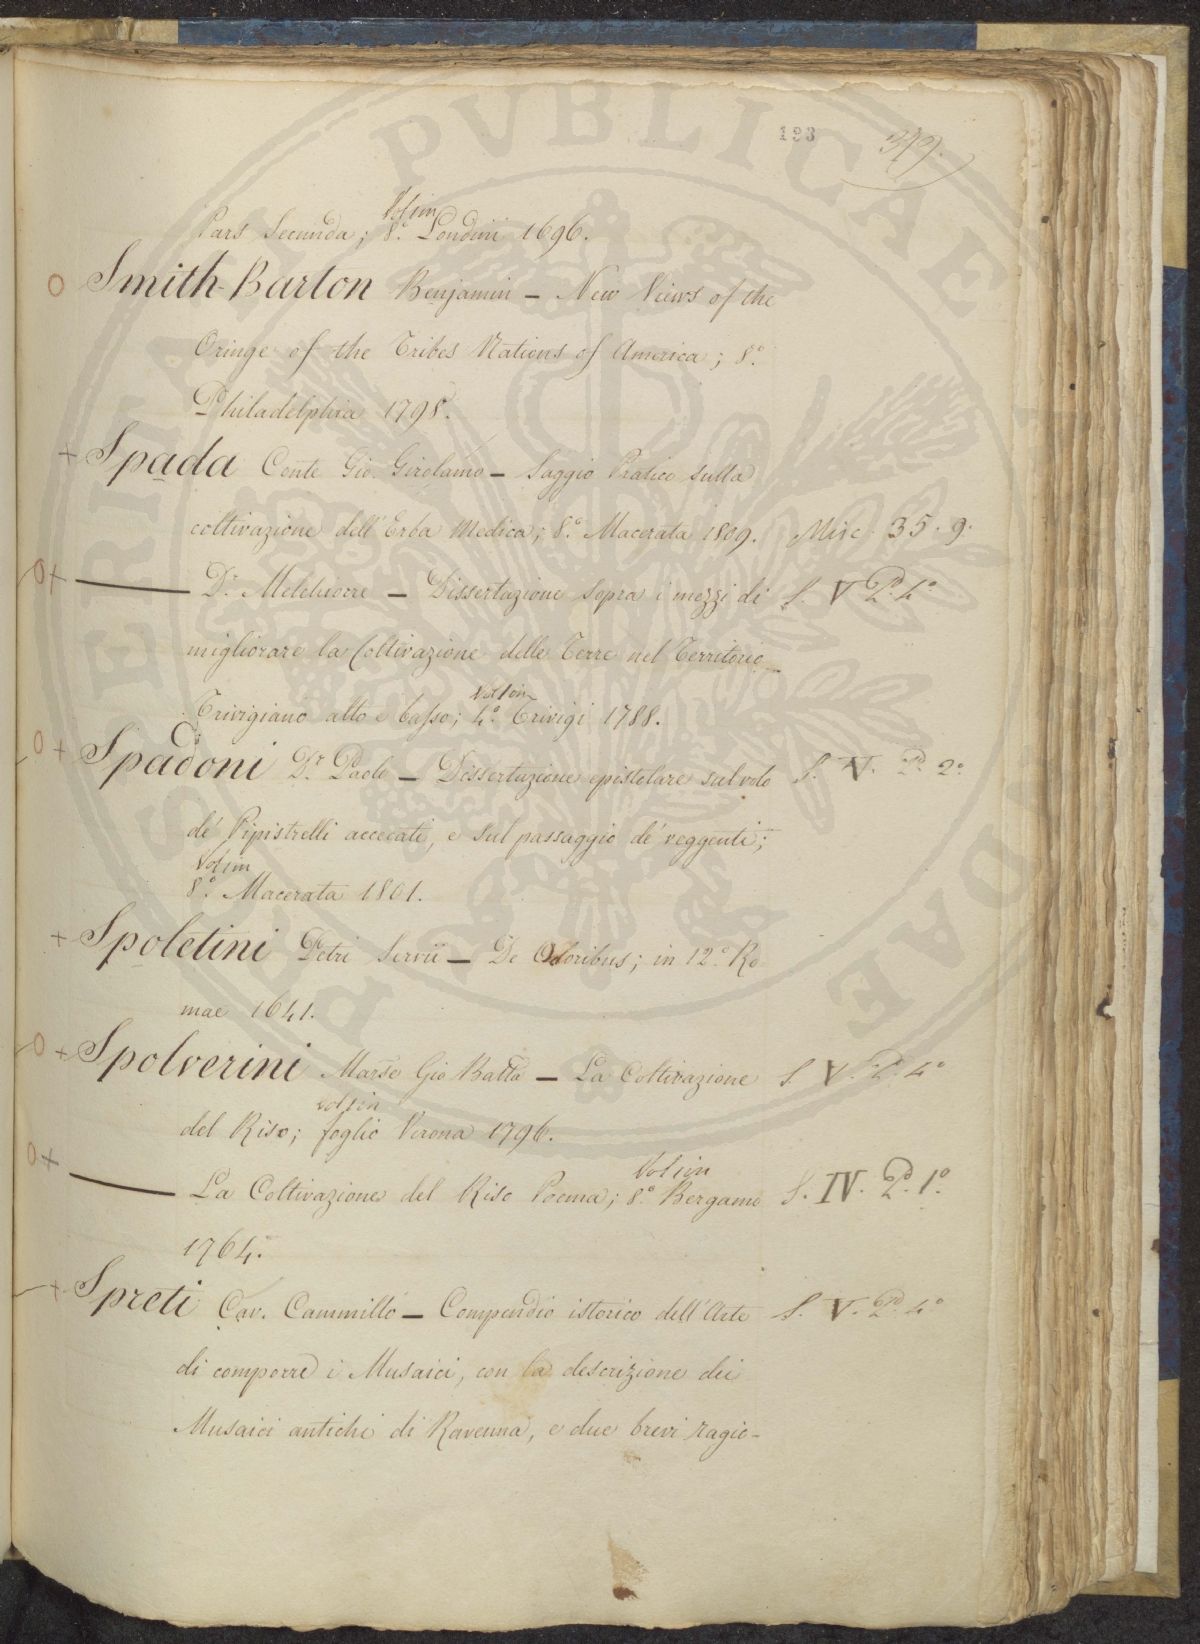 PVBLICAE
193 379.
Vol in
Pars Secunda; 8.° Londini 1696.
O Smith-Barton Benjamin — New Views of the
Oringe of the Tribes Nations of America; 8.°
Philadelphia 1798.
+ Spada Conte Gio. Girolamo — Saggio Pratico sulla
coltivazione dell'Erba Medica; 8.° Macerata 1809. Misc. 35. 9.
O+ —— D.r Melchiorre — Dissertazione sopra i mezzi di S. V. P.d 4.°
migliorare la Coltivazione delle Terre nel Territorio
Vol in
Trivigiano alto e basso; 4.° Trivigi 1788.
O + Spadoni D.r Paolo — Dissertazione epistolare sul volo S. V. P. 2.°
de' Pipistrelli accecati, e sul passaggio de' veggenti;
Vol in
8.° Macerata 1801.
+ Spoletini Petri Servii — De Odoribus; in 12.° Ro
mae 1641.
O + Spolverini Marse Gio Batta — La Coltivazione S. V. P. 4.°
vol in
del Riso; foglio Verona 1796.
Vol in
O+ —— La Coltivazione del Riso Poema; 8.° Bergamo S. IV. P.d 1.°
1764.
+ Spreti Cav. Cammillo — Compendio istorico dell'Arte S. V. P.d 4.°
di comporre i Musaici, con la descrizione dei
Musaici antichi di Ravenna, e due brevi ragio-